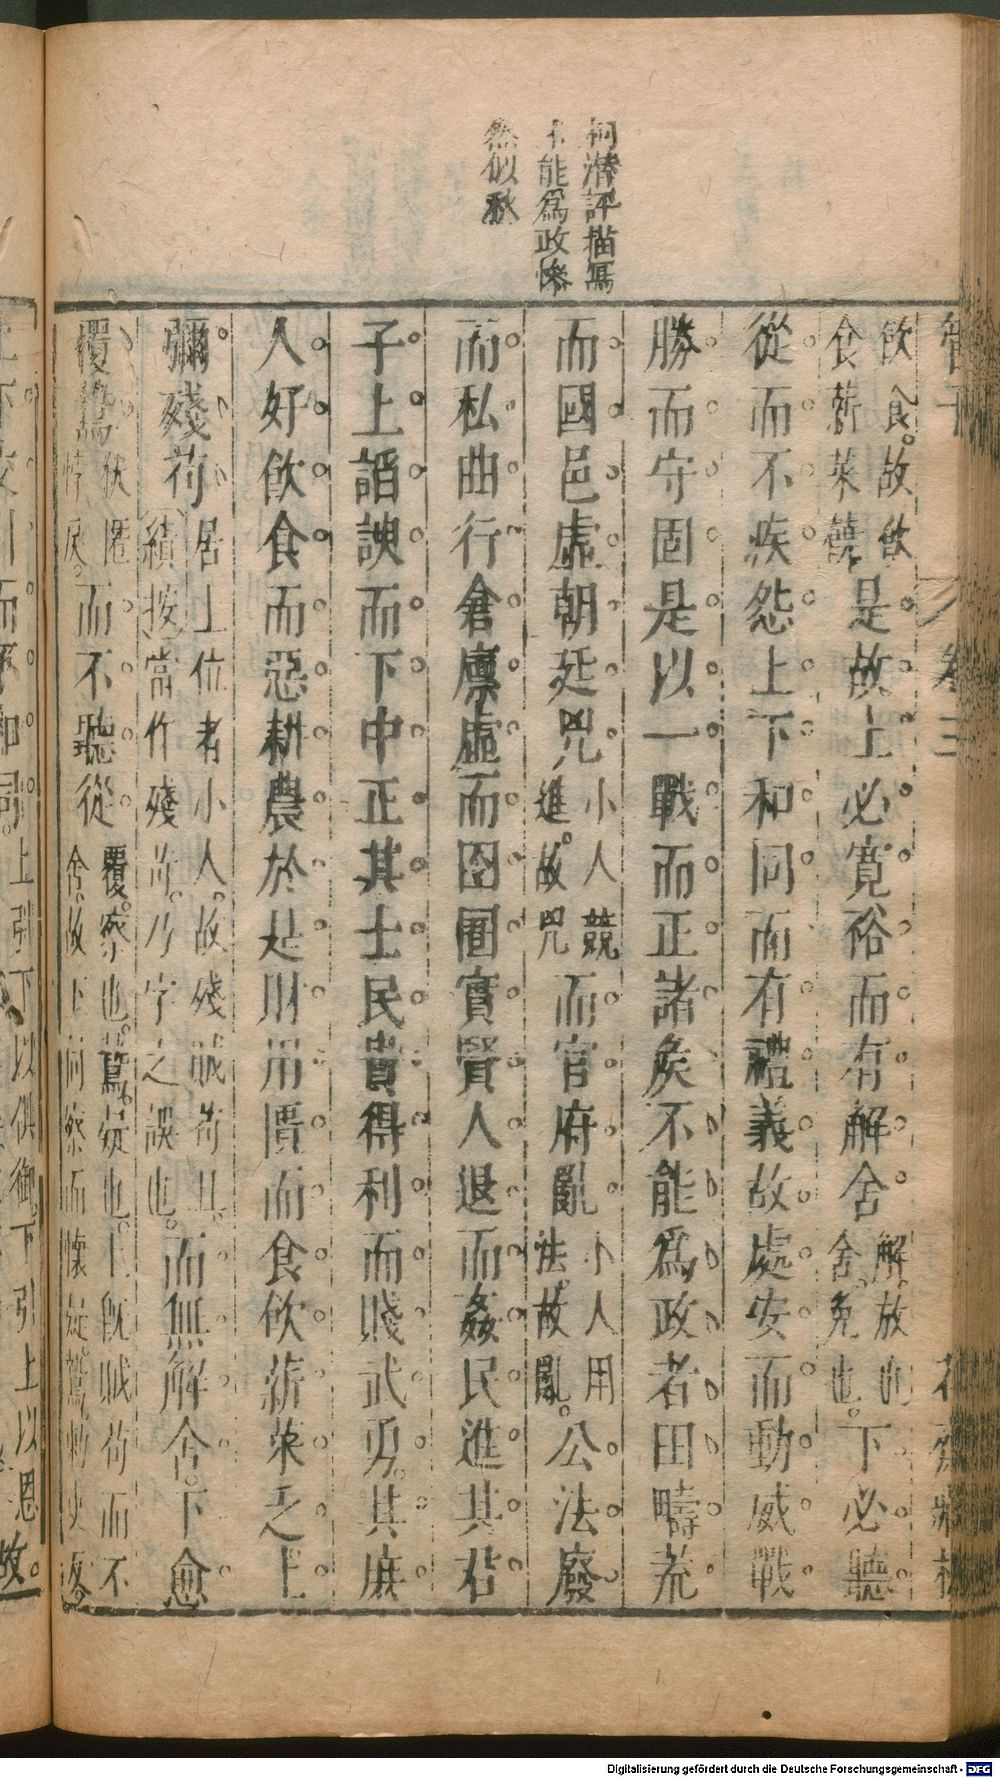 柯潛評描寫
不能爲政慘
然似秋
管子 卷三 花齋藏板
飲食。故飲
食薪菜饒。
是故上必寬裕而有解舍
解。放也
舍。免也。
下必聽
從而不疾怨上下和同而有禮義故處安而動威戰
勝而守固是以一戰而正諸矦不能爲政者田疇荒
而國邑虛朝廷兇
小人競
進。故兇
而官府亂
小人用
法。故亂。
公法廢
而私曲行倉廩虛而囹圄實賢人退而姦民進其君
子上諂諛而下中正其士民貴得利而賤武勇。其庶
人好飲食而惡耕農於是財用匱而食飲薪菜乏上
彌殘苛
居上位者小人。故殘賊苛且。
績按當作殘苛。乃字之誤也。
而無解舍。下愈
覆鷙
伏匿
悖戾。
而不聽從
覆。察也。鷙。疑也。上旣賊苛而不
舍。故下伺察而懷疑。鷙
上下交引而不和同。
上引下以供御。下引上以恩
故。
Digitalisierung gefördert durch die Deutsche Forschungsgemeinschaft - DFG